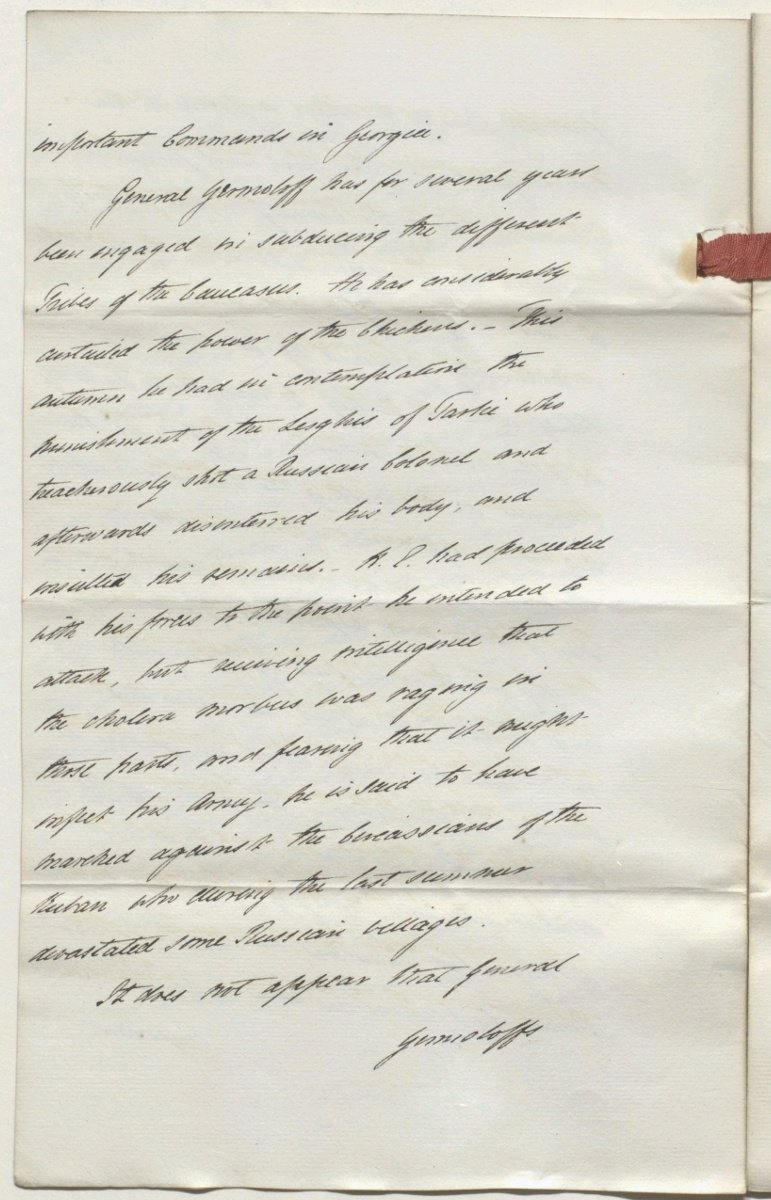 important Commands in Georgia.
General Yermoloff has for several years
been engaged in subducing the different
Tribes of the Caucasus. He has considerably
curtailed the power of the Chichens. _ This
autumn he had in contemplation the
punishment of the Lesghis of Tarkie who
treacherously shot a Russian Colonel and
afterwards disenterred his body, and
insulted his remains. _ H. E. had proceeded
with his forces to the point he intended to
attack, but receiving intelligence that
the cholera morbus was raging in
those parts, and fearing that it might
infect his Army, he is said to have
marched against the Circassians of the
Kuban who during the last summer
devastated some Russian villages.
It does not appear that General
Yermoloffs